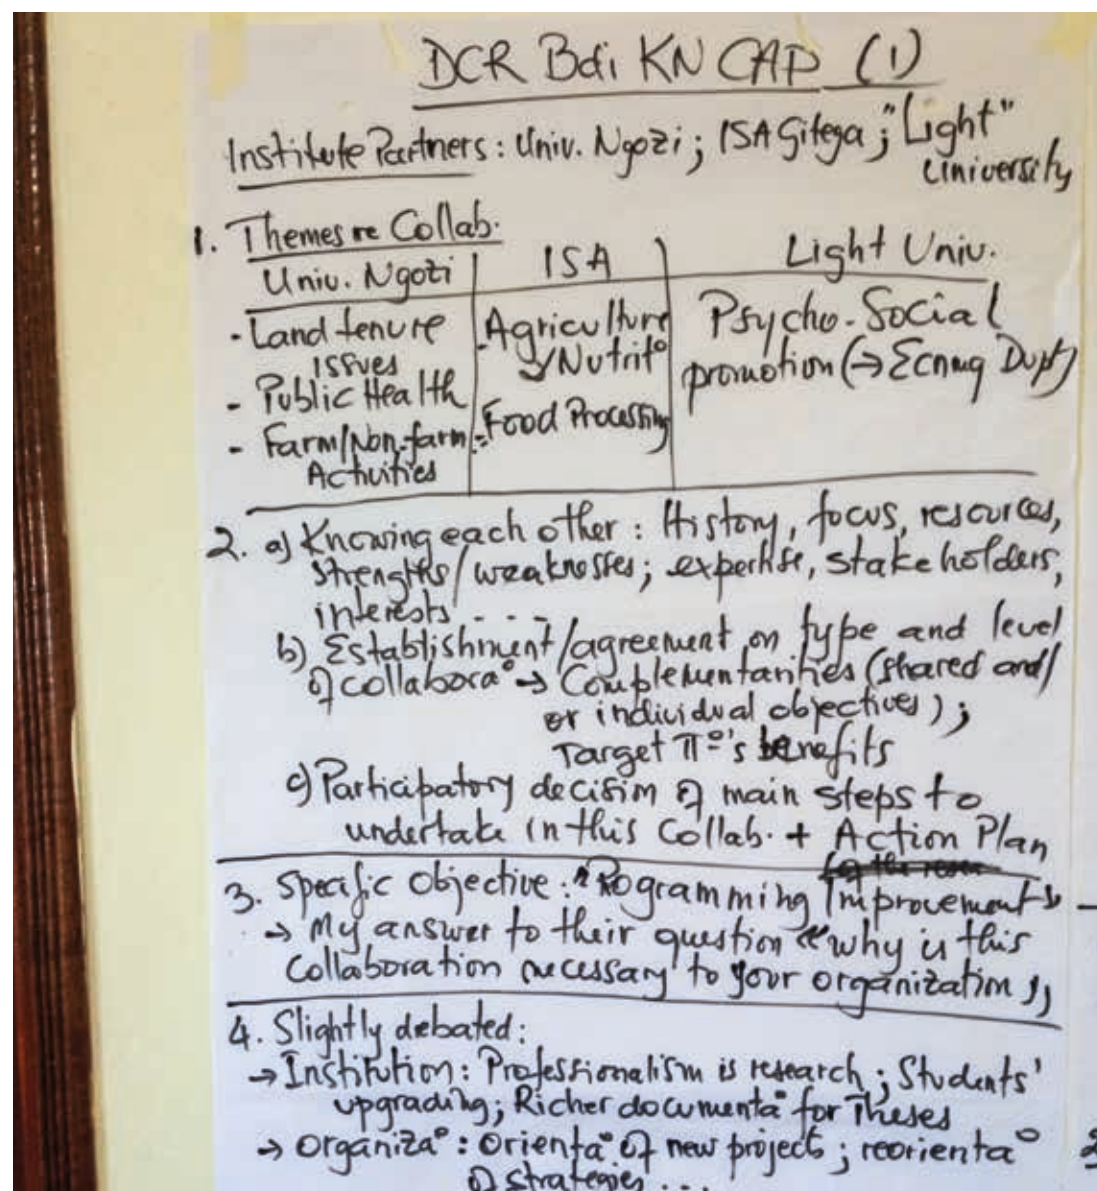 DCR Bdi KN CAP (1)
Institute Partners : Univ. Ngozi ; ISA Gitega ; "Light"
University
1. Themes re Collab.
Univ. Ngozi | ISA | Light Univ.
- Land tenure
issues
- Public Health
- Farm/Non-farm
Activities
- Agriculture
/Nutrit°
- Food Processing
Psycho-Social
promotion (→ Ecnmq Dvpt)
2. a) Knowing each other : History, focus, resources,
strengths/weaknesses; expertise, stakeholders,
interests . - - .
b) Establishment/agreement on type and level
of collabora° → Complementarities (shared and/
or individual objectives) ;
Target π°'s benefits
c) Participatory decision of main steps to
undertake in this Collab. + Action Plan
3. Specific Objective : "Programming Improvement"
→ My answer to their question "why is this
Collaboration necessary to your organization"
4. Slightly debated :
→ Institution : Professionalism is research ; Students'
upgrading ; Richer documenta° for Theses
→ Organiza° : Orienta° of new projects ; reorienta°
of strategies ...